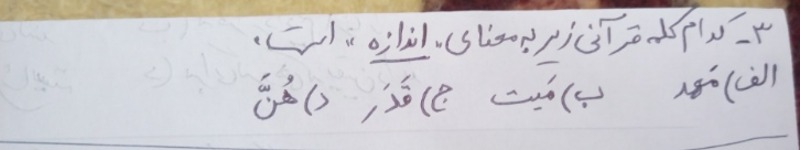 ۳- کدام کلمه قرآنی زیر به معنای "اندازه" است.
الف) مَهد ب) مَیت ج) قَدَر د) هُنَّ